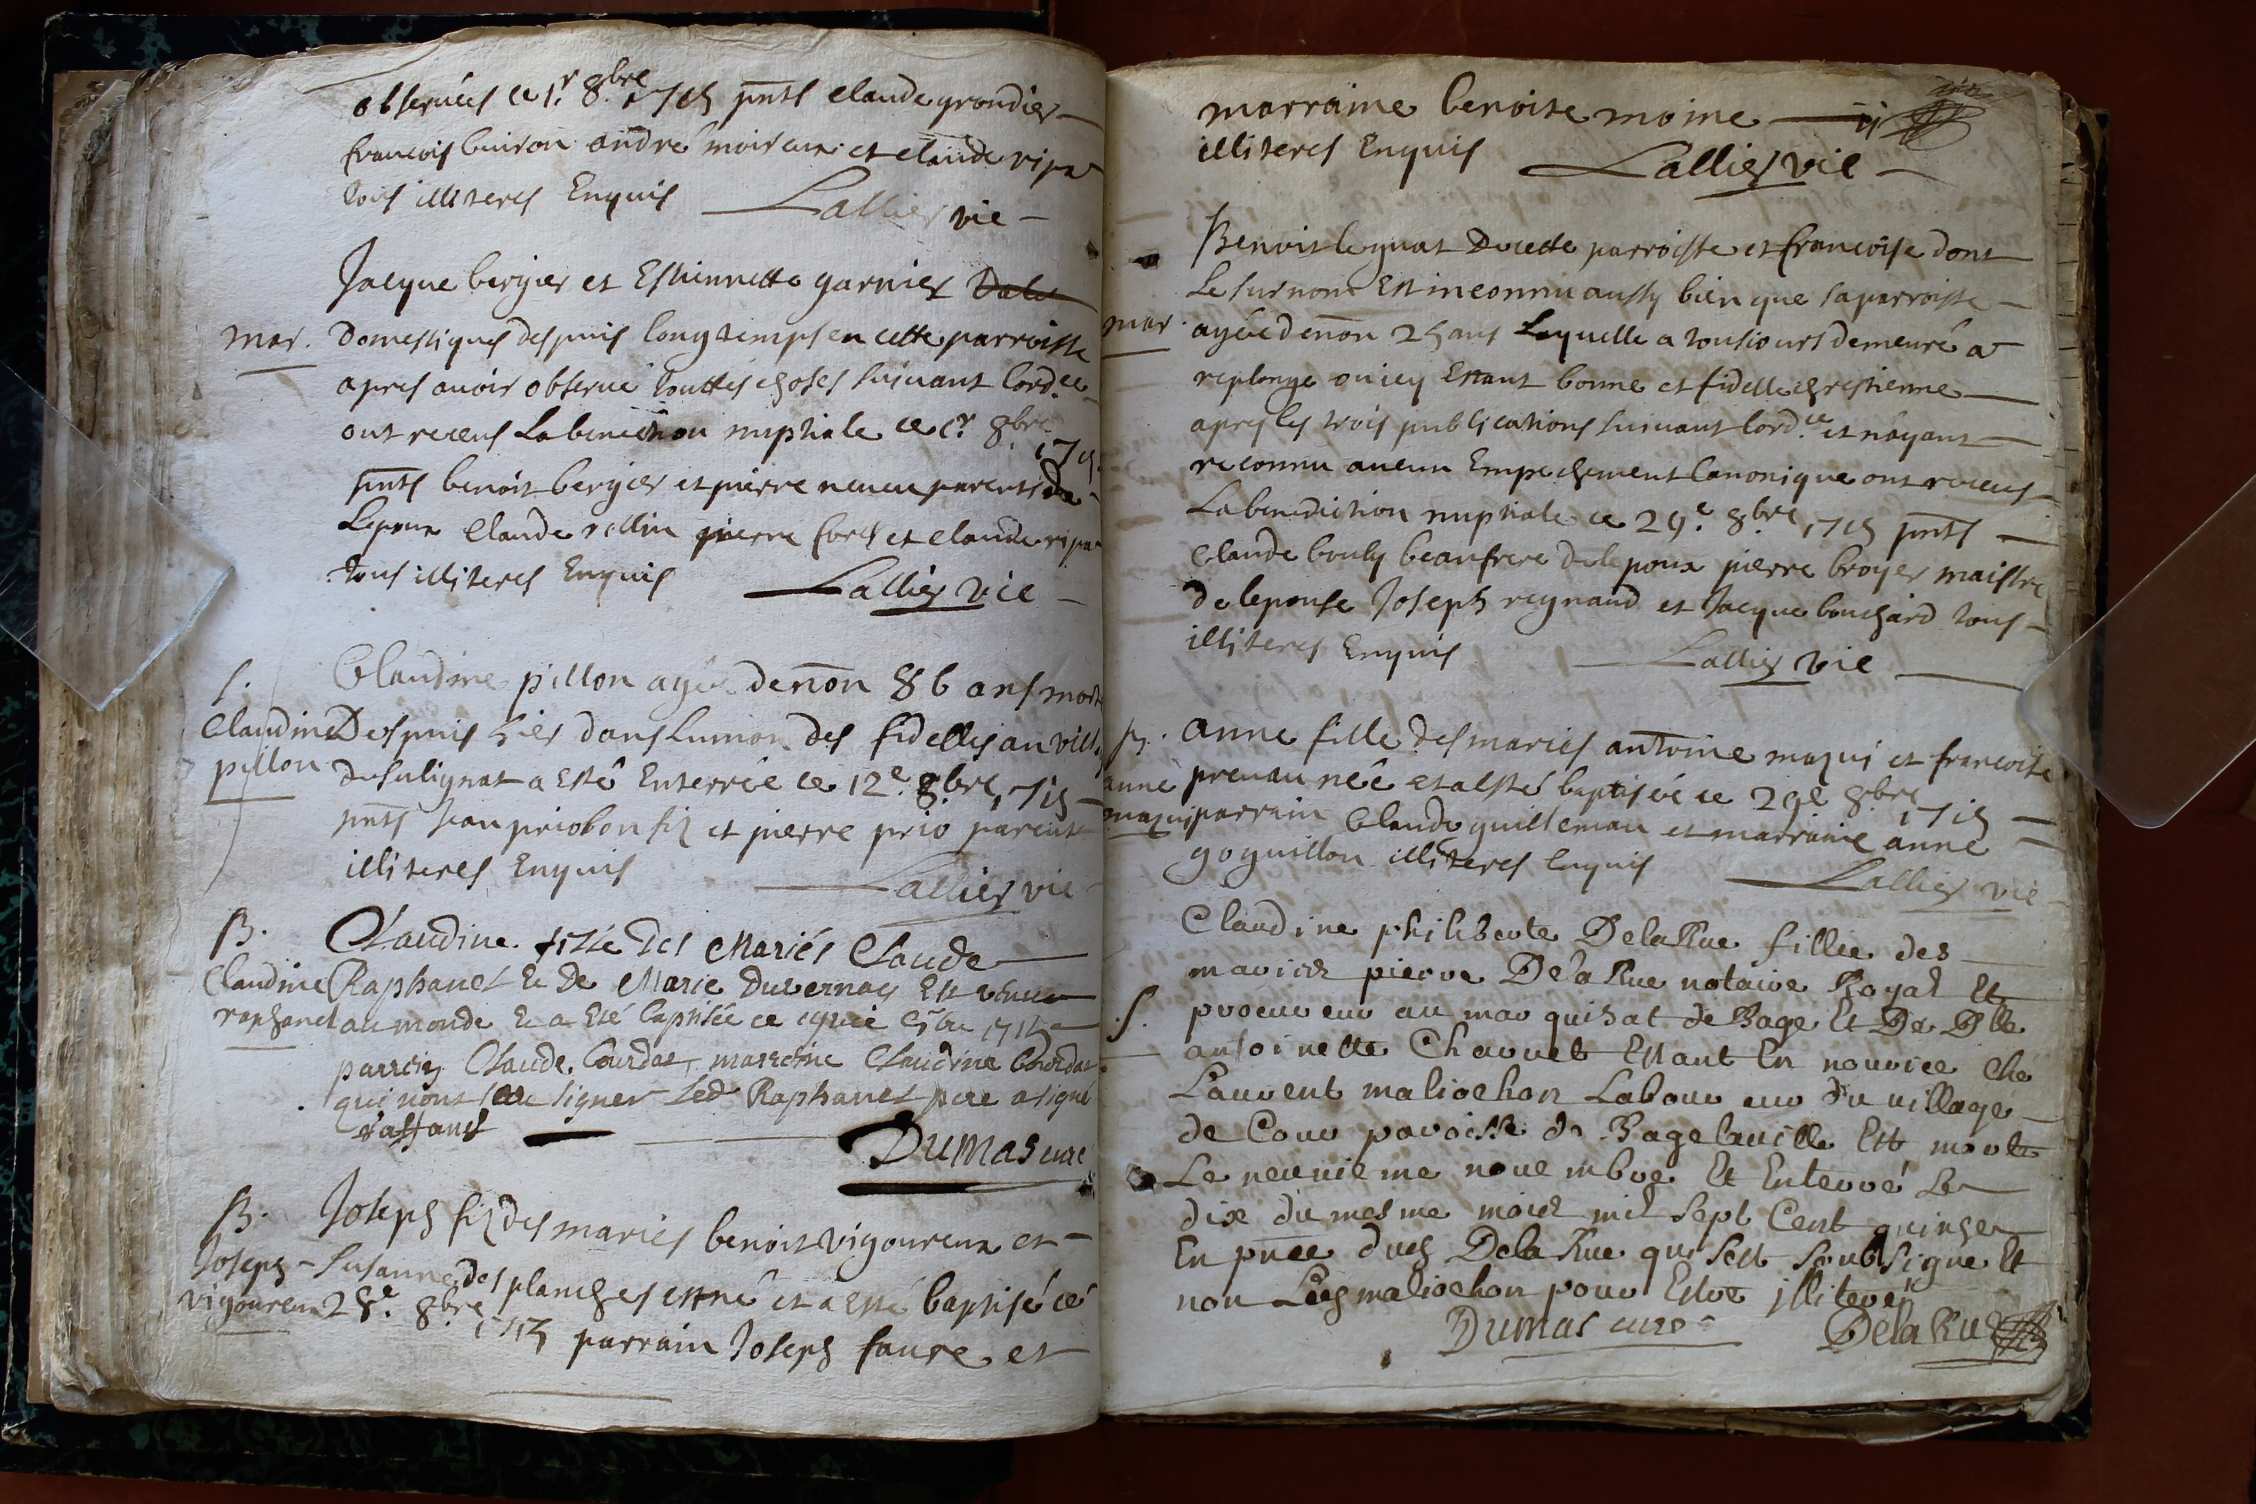 observées ce 1r. 8.bre 1715 pnts claude grondier
francois buiron andre moireux et claude ripa
tous illiteres Enquis Lallier vic
Jacque bergier et Estiennette garnier
mar. Domestiques despuis longtemps en cette parroisse
apres avoir observé touttes choses suivant lord.ce
ont receus La benediction nuptiale ce 1r. 8bre
1715
pnts benoit bergier et pierre neveu parents de
Lepoux Claude rollin pierre forest et claude ripa
tous illiteres Enquis Lallier vic
S. Claudine pillon agée denōn 86 ans morte
Claudine Despuis hier dans Lunion des fidelles au village
pillon de sulignat a Esté Enterrée ce 12e. 8.bre 1715
pnts Jean priobon filz et pierre prio parents
illiteres Enquis Lallier vic
B. Claudine fille des Mariés Claude
Claudine Raphanel & de Marie Duvernay Est venue
raphanel au monde & a Eté baptisée ce 8bre 1715
parrein Claude Gourdat, marreine Claudine Gourdat
qui nont sceu signer Led. Raphanel pere a signé
Dumas curé
B. Joseph filz des mariés benoit vigoureux et
Joseph Susanne des planches est né et a esté baptisé ce
vigoureux 28e. 8bre 1715 parrain Joseph faure et
marraine benoite moine
illiteres Enquis Lallier vic
Benoit leguat De cette parroisse et francoise dont
Le surnom Est inconnu aussy bien que sa parroisse
mar. agée denōn 25 ans Laquelle a tousiours demeuré a
replonge ou icy Estant bonne et fidelle chrestienne
apres les trois publications suivant lord.ce et nayant
reconnu aucun Empechement Canonique ont receus
La benediction nuptiale ce 29e. 8bre 1715 pnts
Claude bouly beaufrere de lepoux pierre broyer maistre
de lepouse Joseph reynaud et Jacque bouchard tous
illiteres Enquis Lallier vic
B. anne fille des mariés antoine mazui et francoise
anne prevau née et a Esté baptisée ce 29e 8bre 1715
mazui parrain Claude guilleman et marraine anne
goguillon illiteres Enquis Lallier vic
Claudine philiberte DelaRue fillie des
maries pierre DelaRue notaire Royal Et
S. procureur au marquisat de Bage Et De Dlle
antoinette Charvet Estant En nourice Ché
Laurent maliochon Laboureur du village
de Cour paroisse de Bage laville Est morte
Le neuvieme novembre Et Enterré Le
dix du mesme mois mil sept Cent quinze
En pnce dud DelaRue qui sest soubsigne Et
non Led maliochon pour Estre jlliteré
Dumas curé DelaRue